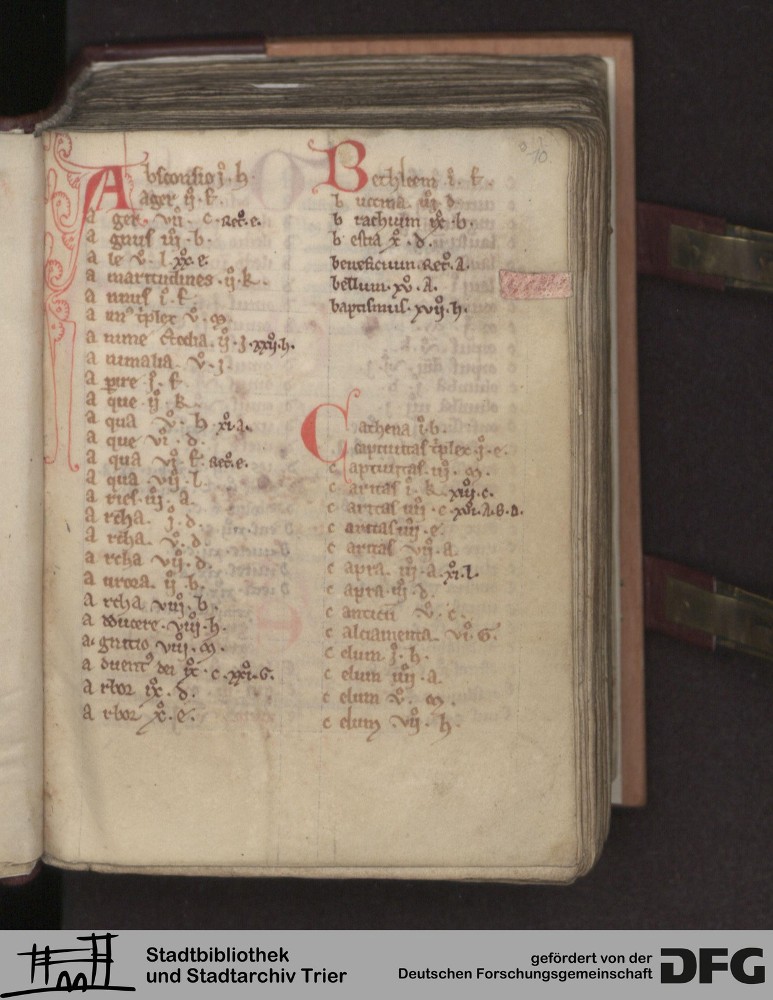 Absconsio j. h.
ager ij. f.
a ger. vij. c. Rec. e.
a gnus iij. b.
a le v. l. xx. e.
a maritudines. ij. k.
a nimus i. f.
a nime
a nimalia. v. j.
a que. ij. k.
a qua. v. h. xi. a.
a que vi. d.
a qua vj. f. Rec. e.
a qua vij. l.
a ries. iij. a.
a rcha. j. d.
a rcha. v. d.
a rcha vij. d.
a urora. ij. b.
a rcha viij. b.
a dducere. viij. h.
a duent9 dei ix. c. xxi. G.
a rbor ix. d.
a rbor x. e.
70.
Bethleem i. f.
b uccina. iij. d.
b rachium ix. b.
b estia x. d.
beneficium. Rec. A.
bellum. xv. A.
baptismus. xvij. h.
Cathena i. b.
captiuitas
c aptiuitas. iij. m.
c aritas i. k. xiij. c.
c aritas iiij. c. xvi. A. B. D.
c aritas iiij. e.
c aritas vij. a.
c apra. iij. a. xi. l.
c apra. iij. d.
c antici v. c.
c alciamenta. vi. G.
c elum j. h.
c elum iiij. a.
c elum v. m.
c elum vij. h.
Stadtbibliothek
und Stadtarchiv Trier
gefördert von der
Deutschen Forschungsgemeinschaft
DFG